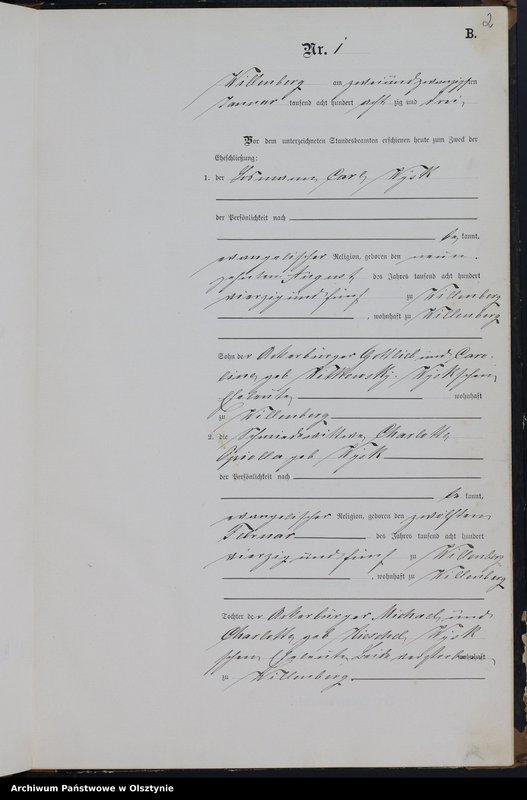 2
B.
Nr. 1
Willenberg am zweiundzwanzigsten
Januar tausend acht hundert acht zig und drei,
Vor dem unterzeichneten Standesbeamten erschienen heute zum Zweck der
Eheschließung:
1. der Carl Wysk
der Persönlichkeit nach
be kannt,
evangelischer Religion, geboren den neun-
zehnten August des Jahres tausend acht hundert
vierzig und fünf zu Willenberg
, wohnhaft zu Willenberg
Sohn der Ackerbürger Gottlieb und Caro-
line, geb Witkowsky- Wysk'schen
Eheleute, wohnhaft
zu Willenberg
2. die Schmiedewittwe, Charlotte
geb Wysk
der Persönlichkeit nach
be kannt,
evangelischer Religion, geboren den zwölften
Februar des Jahres tausend acht hundert
vierzig und fünf zu Willenberg
, wohnhaft zu Willenberg
Tochter der Ackerbürger Michael und
Charlotte geb Wysk
schen Eheleute, beide verstorben wohnhaft
zu Willenberg
Archiwum Państwowe w Olsztynie